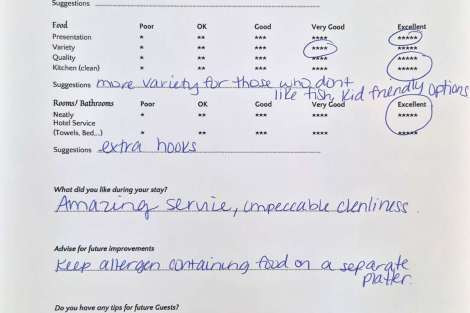 Suggestions
Food Poor OK Good Very Good Excellent
Presentation * ** *** **** *****
Variety * ** *** **** *****
Quality * ** *** **** *****
Kitchen (clean) * ** *** **** *****
Suggestions more variety for those who dont
like fish, Kid friendly options
Rooms/ Bathrooms Poor OK Good Very Good Excellent
Neatly * ** *** **** *****
Hotel Service
(Towels, Bed...) * ** *** **** *****
Suggestions extra hooks
What did you like during your stay?
Amazing servie, impeccable clenliness.
Advise for future improvements
Keep allergen containing food on a separate
platter.
Do you have any tips for future Guests?